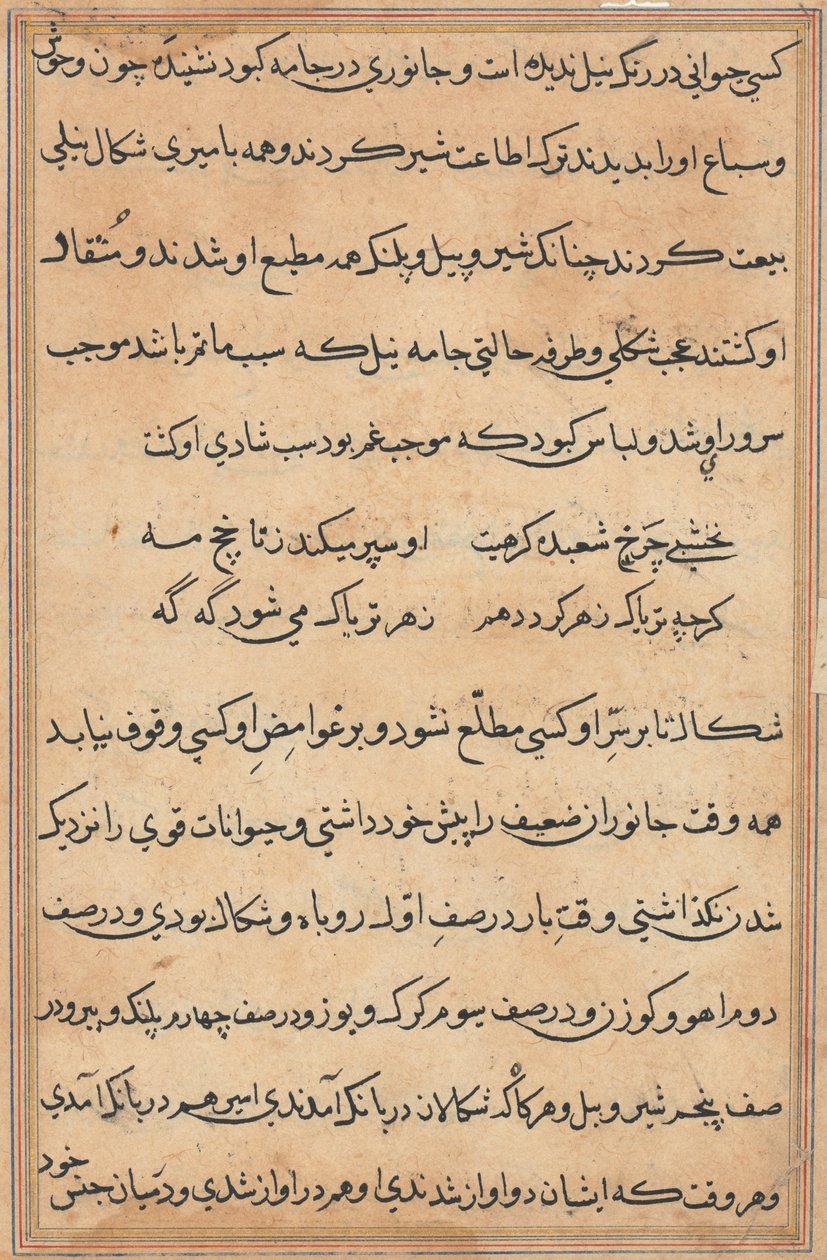 کسي حیواني در رنک نیل ندیده است و جانوري در جامه کبود نشنیده چون وحوش
و سباع اورا بدیدند ترک اطاعت شیر کردند و همه بامیري شکال نیلي
بیعت کردند چنانک شیر و پیل و پلنک همه مطیع او شدند و مُنْقاد
او کشتند عجب شکلي و طرفه حالتي جامه نیل که سبب ماتم باشد موجب
سرور اوي شد و لباس کبود که موجب غم بود سبب شادي او کشت
نخشبي چَرخ شعبده کرهیت او سپر میکند ز تا نخ مه
کرچه تریاک زهر کردد هم زهر تریاک مي شود گه گه
شکال تا بر سِرّ او کسي مطلّع نشود و بر غوامِضِ او کسي وقوف نیابد
همه وقت جانوران ضعیف را پیش خود داشتي و حیوانات قوي را نزدیک
شدن نکذاشتي وقتِ بار در صفِ اوّل روباه و شکال بودي و در صف
دوم اهو و کوزن و در صف سوم کرک و یوز و در صف چهارم پلنک و ببر و در
صف پنجم شیر و پیل و هرکاْه شکالان در بانک آمدندي امیر هم در بانک آمدي
و هر وقت که ایشان در اواز شدندي او هم در اواز شدي و در میان جنس خود